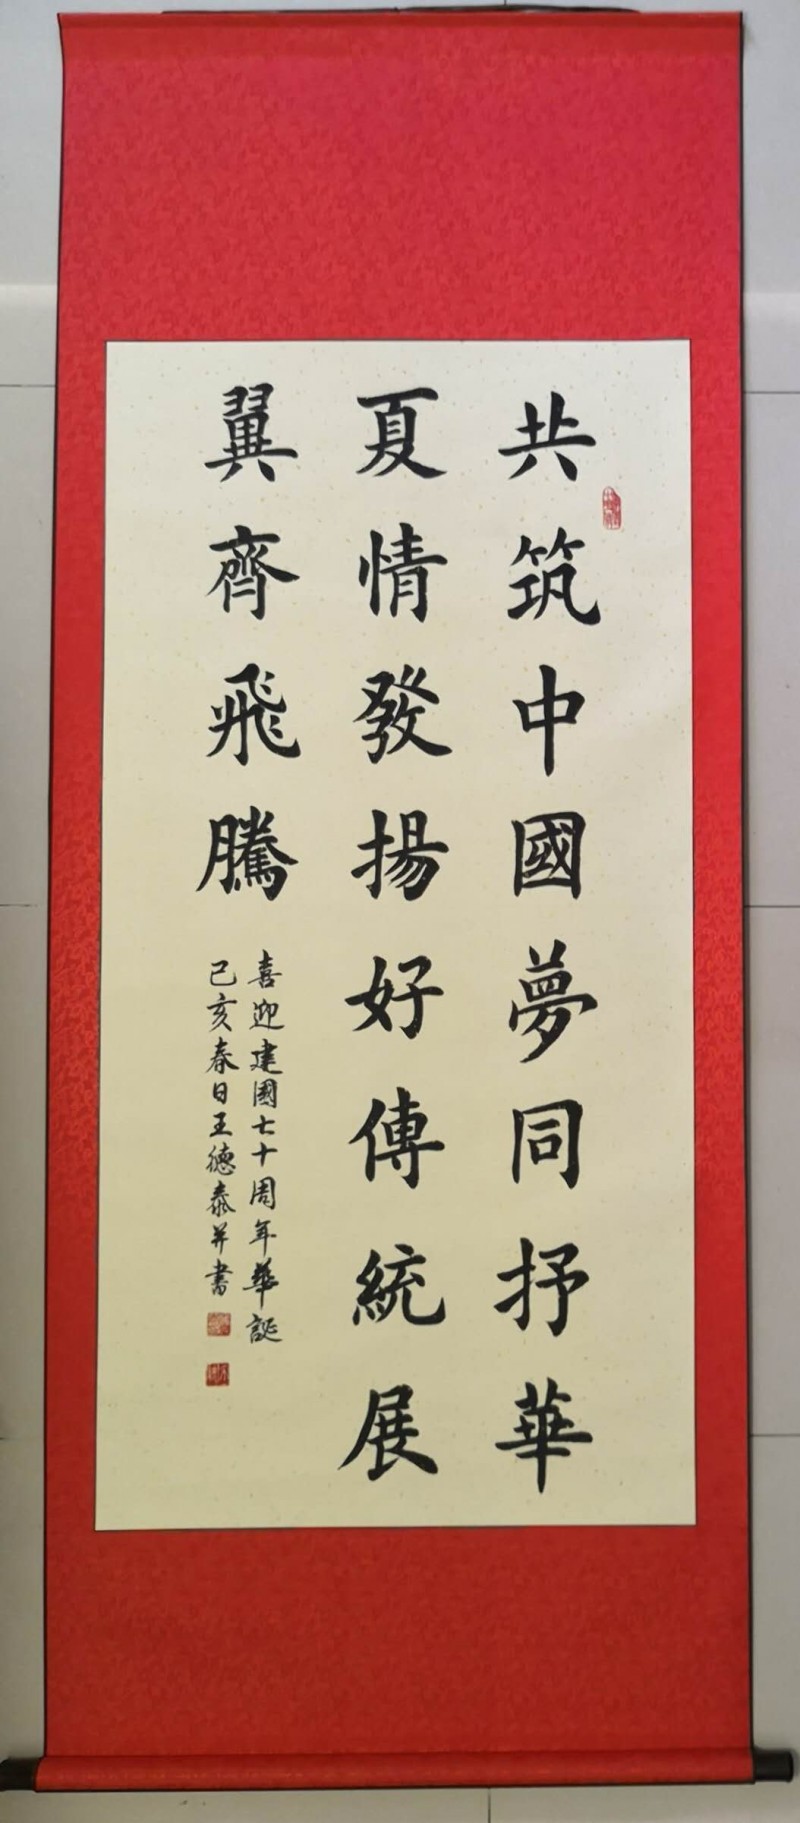 共筑中國夢同抒華
夏情發揚好傳統展
翼齊飛騰
喜迎建國七十周年華誕
己亥春日王德泰并書